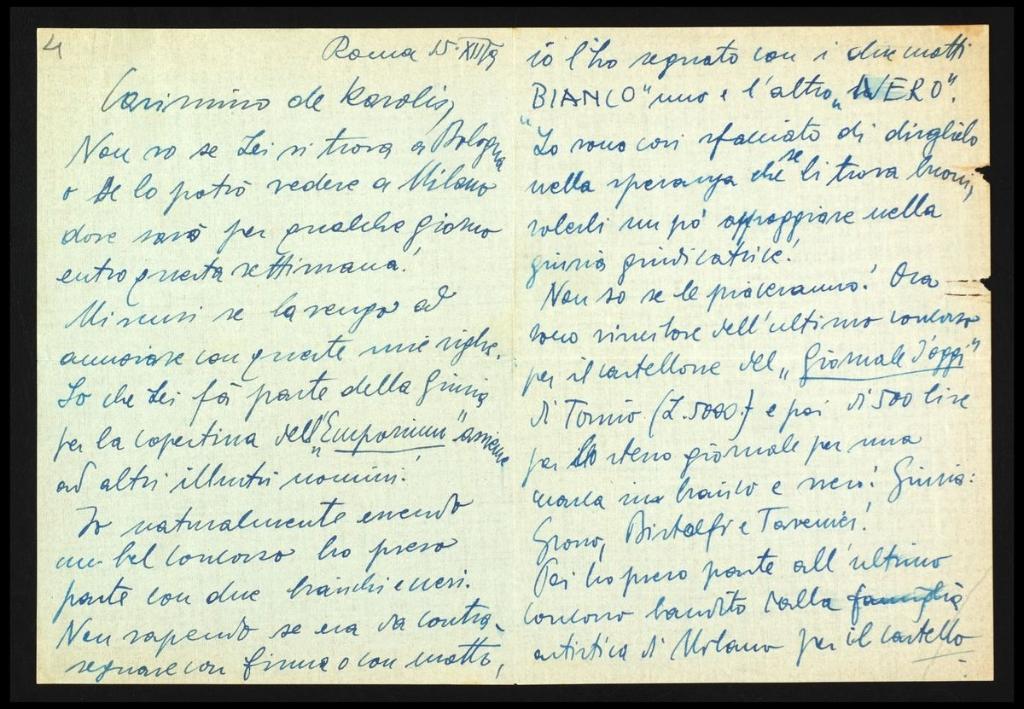 4
Roma 15-XII/9
Carissimo de Karolis,
Non so se Lei si trova a Bologna
o se lo potrò vedere a Milano
dove sarò per qualche giorno
entro questa settimana!
Mi scusi se la vengo ad
annoiare con queste mie righe.
So che Lei fà parte della Giuria
per la copertina dell'„Emporium" assieme
ad altri illustri uomini!
Io naturalmente essendo
un bel concorso ho preso
parte con due bianchi e neri.
Non sapendo se era da contra-
segnare con firma o con motto,
io l'ho segnato con i due motti
„BIANCO" uno e l'altro „NERO".
Io sono così sfacciato di dirglielo
nella speranza che se li trova buoni,
volerli un pò appoggiare nella
giuria giudicatrice!
Non so se le piaceranno! Ora
sono vincitore dell'ultimo concorso
per il cartellone del „Giornale d'oggi"
di Torino (L. 5000.-) e poi di 500 lire
per lo stesso giornale per una
marca in bianco e nero! Giuria:
Grosso, Bistolfi e Tavernier!
Poi ho preso parte all'ultimo
concorso bandito dalla famiglia
artistica di Milano per il cartello